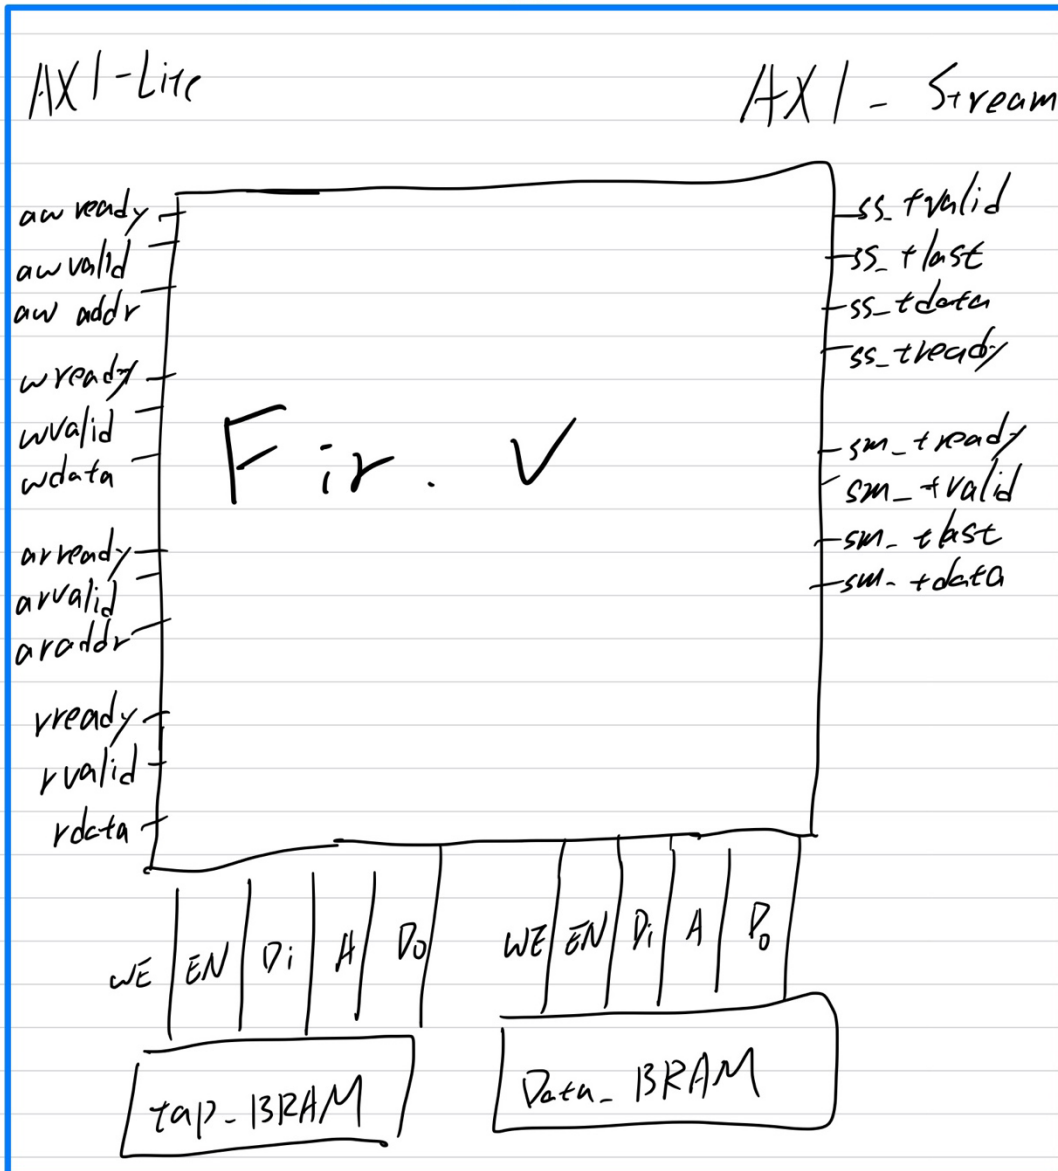 AXI-Lite
AXI - Stream
awready
awvalid
awaddr
wready
wvalid
wdata
arready
arvalid
araddr
rready
rvalid
rdata
Fir.V
ss_tvalid
ss_tlast
ss_tdata
ss_tready
sm_tready
sm_tvalid
sm_tlast
sm_tdata
WE EN Di A Do
WE EN Di A Do
tap_BRAM
Data_BRAM